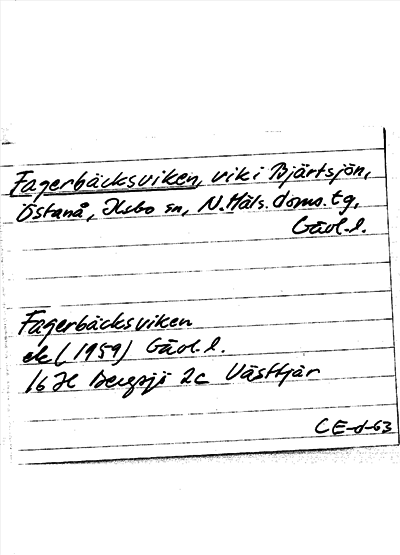 Fagerbäcksviken, vik i Bjärtsjön,
Östanå, Ilsbo sn, N. Häls. doms. tg,
Gävl. l.
Fagerbäcksviken
ek (1959) Gävl. l.
16H Bergsjö 2c Västtjär
CE-d-63